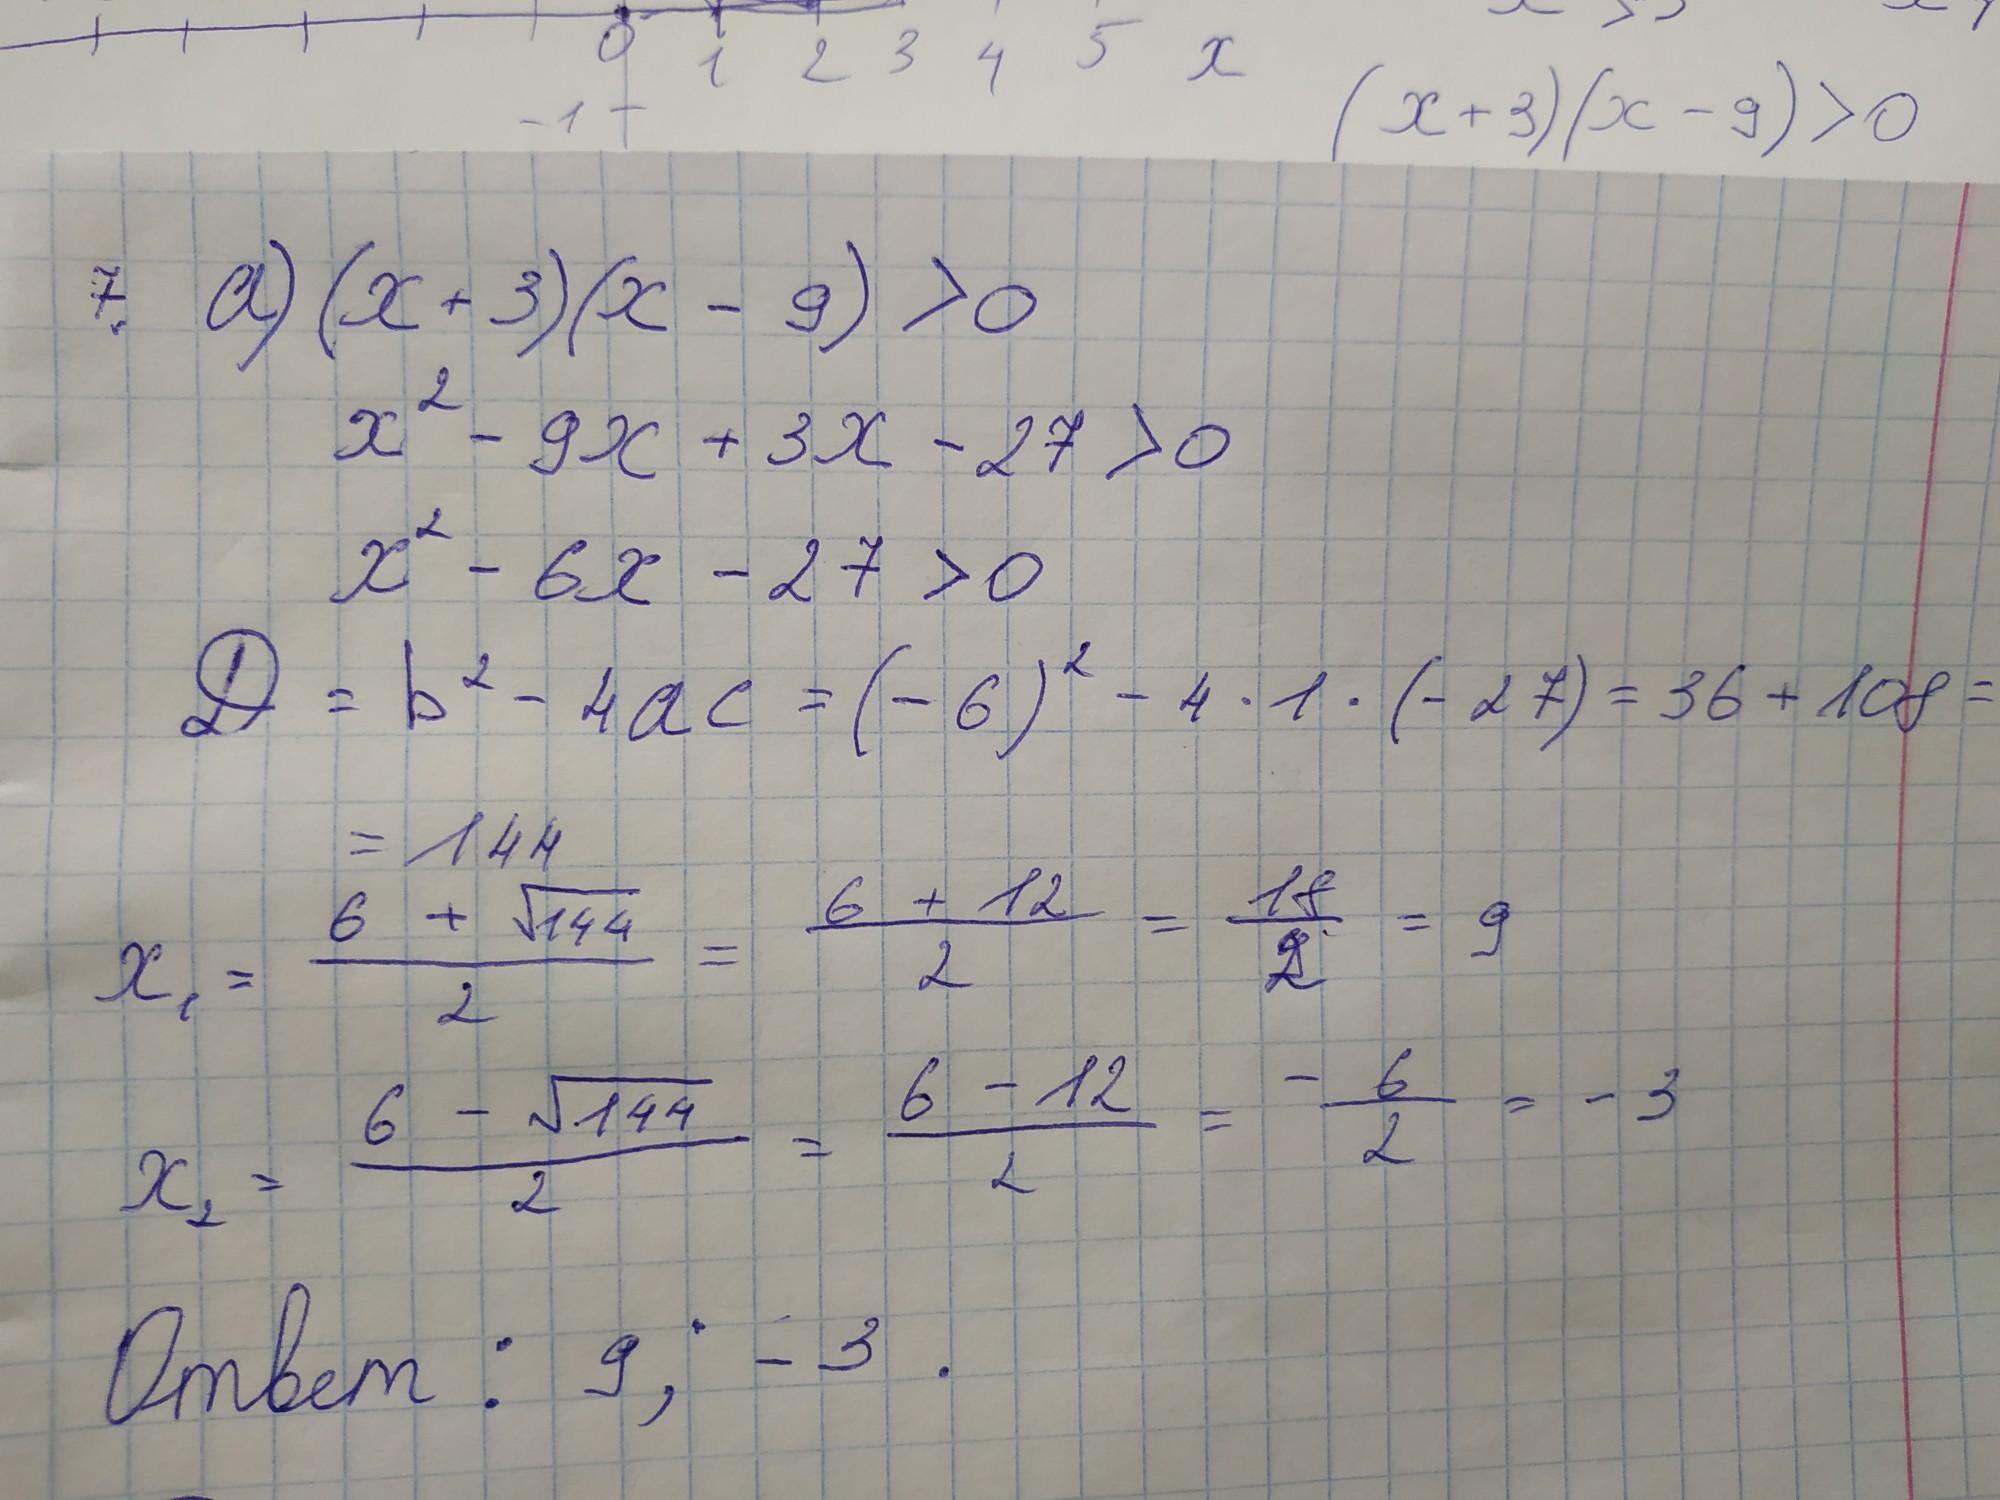 0 1 2 3 4 5 x
-1
(x+3)(x-9)>0
7. а) (x+3)(x-9)>0
x² - 9x + 3x - 27 > 0
x² - 6x - 27 > 0
D = b² - 4ac = (-6)² - 4·1·(-27) = 36 + 108 =
= 144
x₁ = (6 + √144)/2 = (6 + 12)/2 = 18/2 = 9
x₂ = (6 - √144)/2 = (6 - 12)/2 = -6/2 = -3
Ответ: 9; -3.